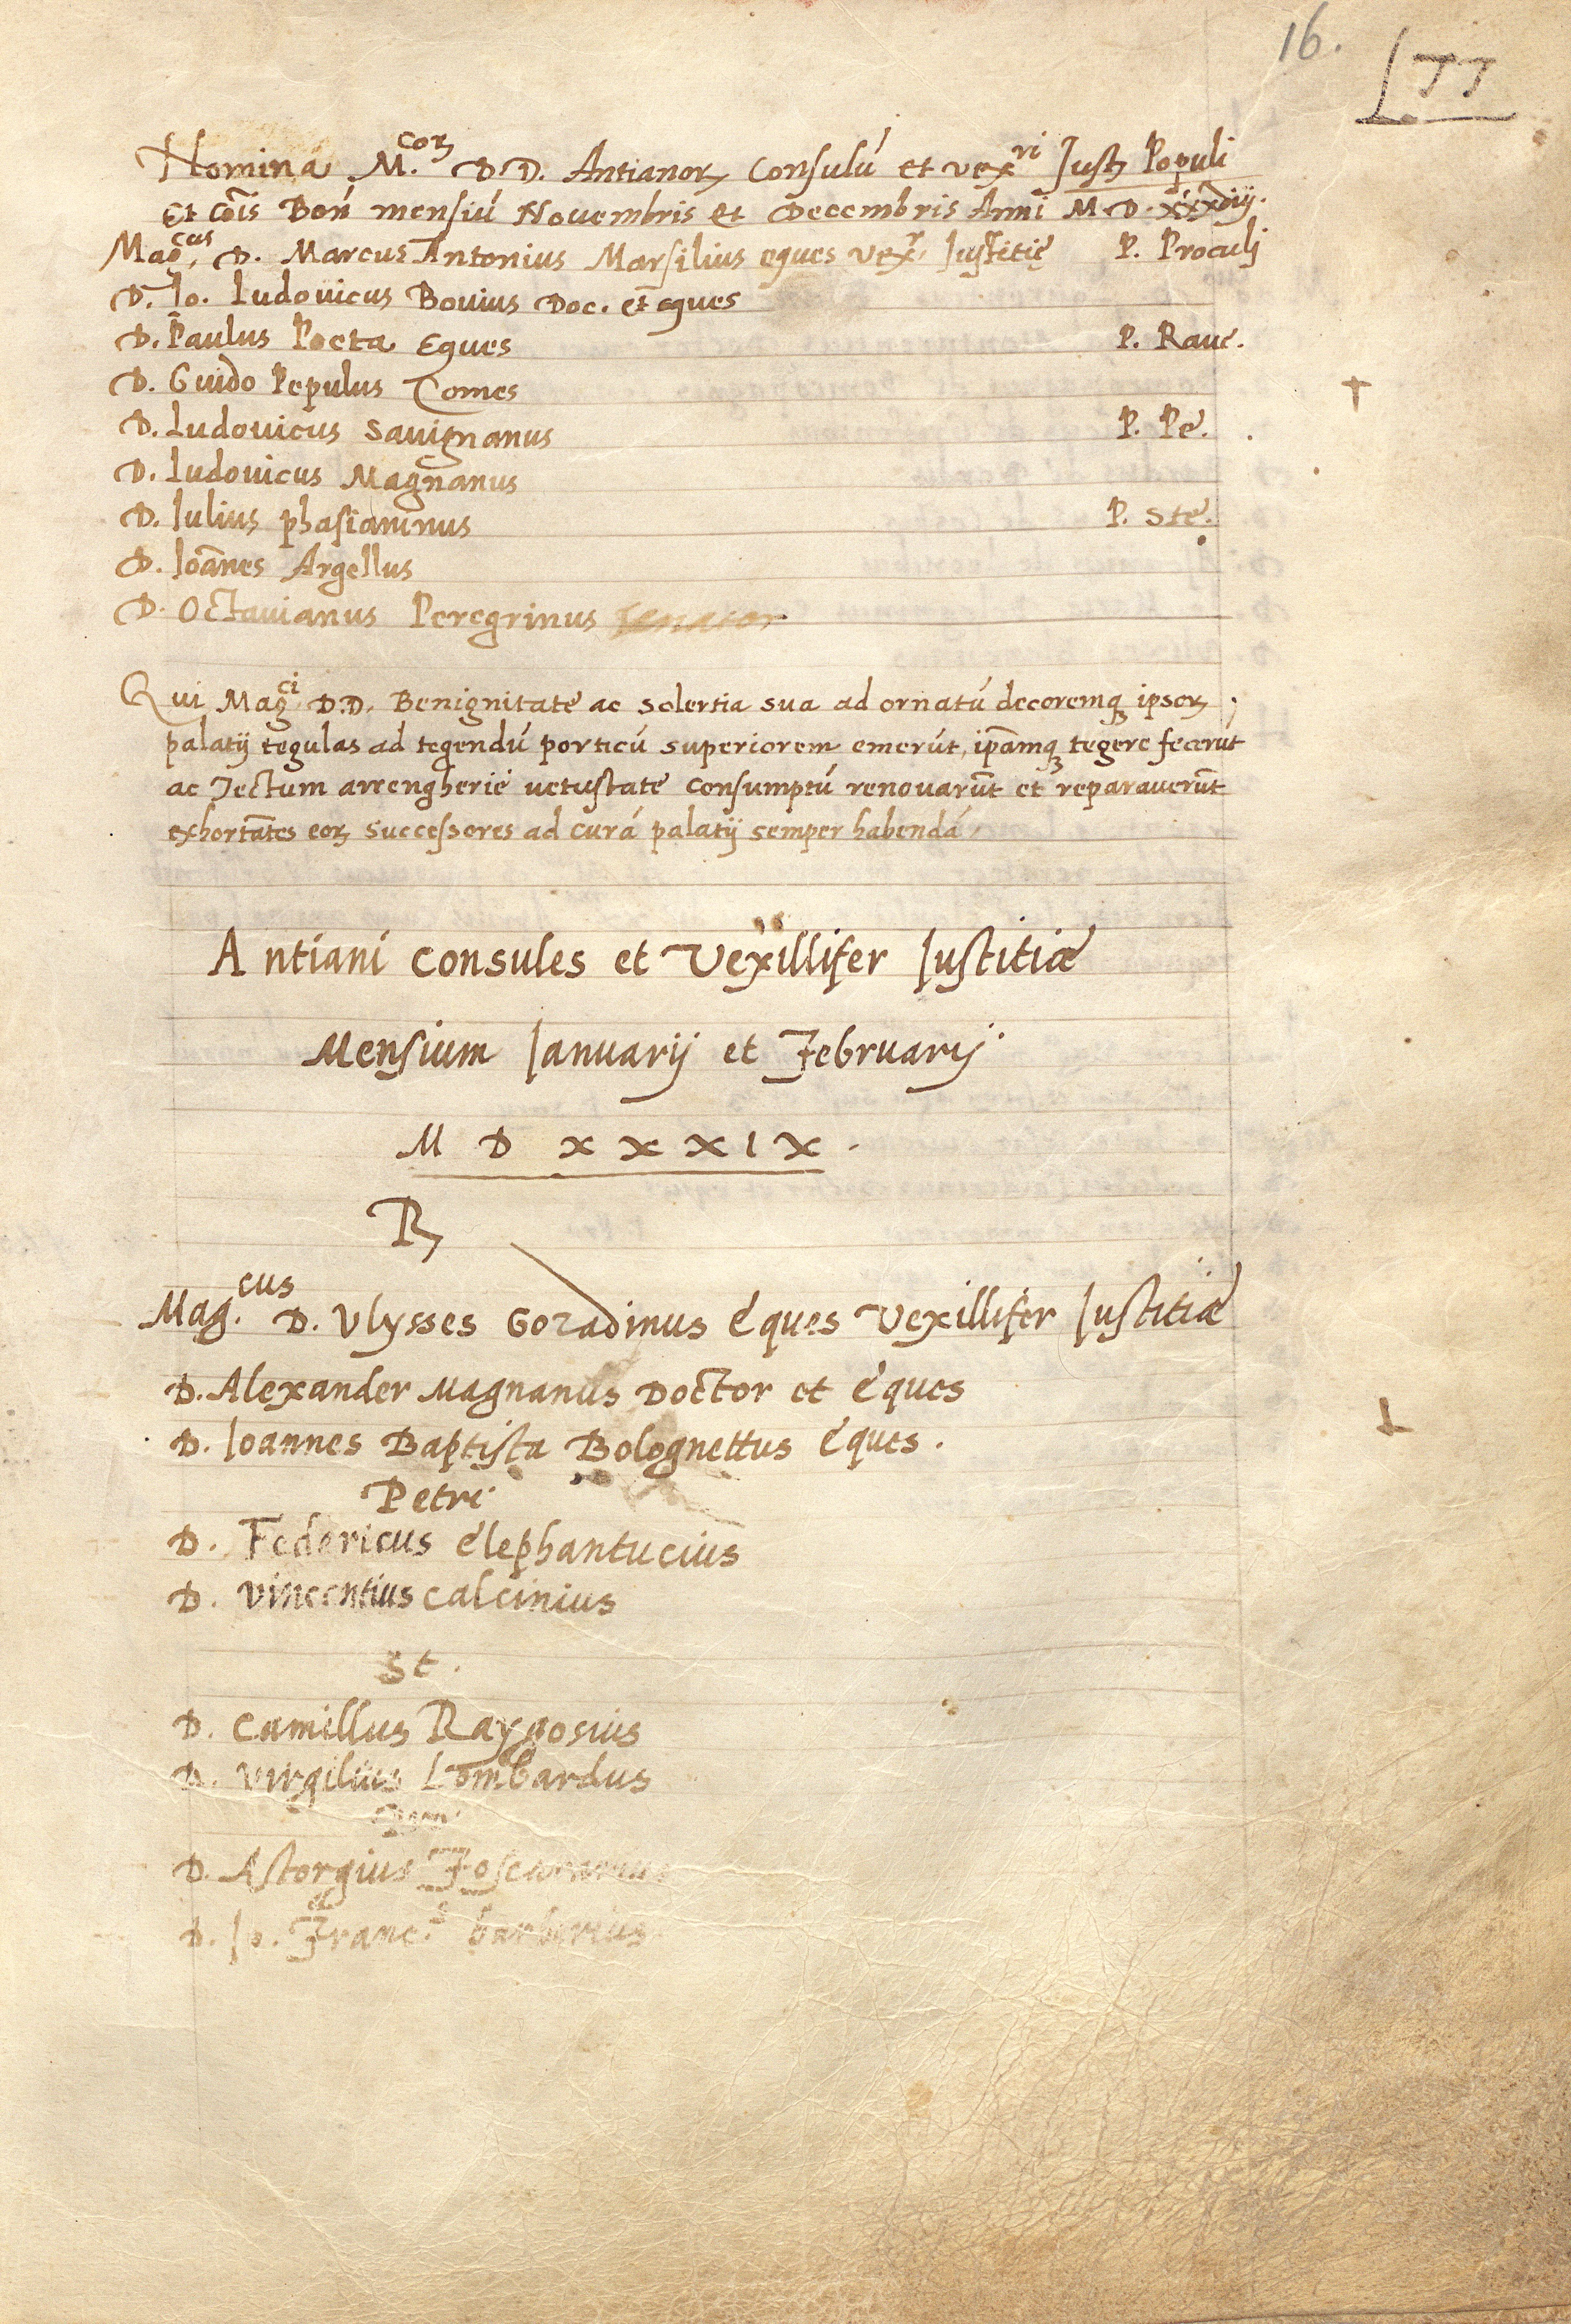 16.
Nomina M.coꝝ D.D. Antianoꝝ Consulū et vexri Just Populi
Et Cōis Bon̄ mensiū Novembris et Decembris Anni M.D.
Mag.cus D. Marcus Antonius Marsilius eques vexr Justitię P. Proculi
D. Io. Ludovicus Bovius Doc. et eques
D. Paulus Poeta Eques P. Rave.
D. Guido Pepulus Comes
D. Ludovicus Savignanus P. Pe.
D. Ludovicus Magnanus
D. Iulius phasianinus P. Ste.
D. Ioānes Argellus
D. Octavianus Peregrinus senator
Qui Magci D.D. Benignitate ac solertia sua ad ornatū decoremqꝫ ipsoꝝ
palatij tegulas ad tegendū porticū superiorem emerūt, ip̄amqꝫ tegere fecerūt
ac Tectum arrengherie vetustate consumptū renovarūt et reparaverūt
exhortātes eoꝝ successores ad curā palatij semper habendā
Antiani Consules et Vexillifer Iustitiæ
Mensium Ianuarij et Februarij
M D X X X I X .
R
Mag.cus D. Vlysses Gozadinus Eques Vexillifer Iustitiæ
D. Alexander Magnanus Doctor et Eques
D. Ioannes Baptista Bolognettus Eques.
Petri
D. Federicus Elephantucius
D. Vincentius Calcinius
St.
D. Camillus Raygosius
D. Virgilius Lombardus
D. Astorgius Foscararius
D. Io. Franc.s barberius